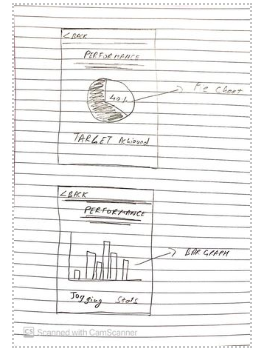 < BACK
PERFORMANCE
40%
Pie Chart
TARGET Achieved
< BACK
PERFORMANCE
BAR GRAPH
Jogging Stats
CS Scanned with CamScanner